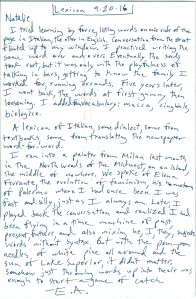 Lexicon 9-20-16
Natalie,
I tried learning, by force, listing words on one side of the
page in Italian, the other in English. Conversation from the street
floated up to my window. I practised writing the
same word over and over. Eventually the song
took root but it was only with the playfulness of
talking in bars, getting to know the family I
worked for, running errands. Five years later
I went back, the words at first gummy, then
loosening. I added to vocabulary: macca, cinghiale,
biologico.
A lexicon of Italian, some dialect, some from
textbooks, some from translating the newspaper
word-for-word.
I ran into a painter from Milan, last month
in the North woods of the Midwest on an island, in
the middle of nowhere. We spoke of Elena
Ferrante, the evolution of feminism, his memory
of Palermo where I had once been. I was
fast and silly, just as I always am. Later, I
played back the conversation and realized I had
been flying in a time machine of past
present, future, and also mixing he, I, they, subjects
words without syntax, but with the
needles of white pine all around and the
sun of Lake Superior, it didn't matter;
somehow just throwing words up into their air
enough to start a game of catch.
—E.A.